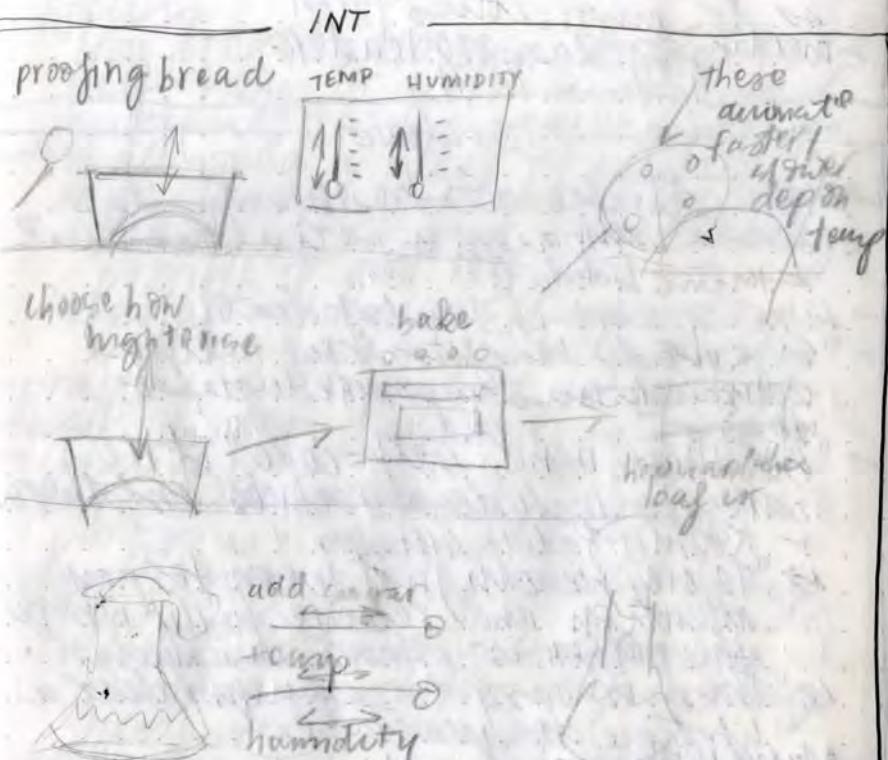 INT
proofing bread
TEMP HUMIDITY
these
animate
faster/
slower
dep on
temp
choose how
high to rise
bake
loaf is
add sugar
temp
humidity